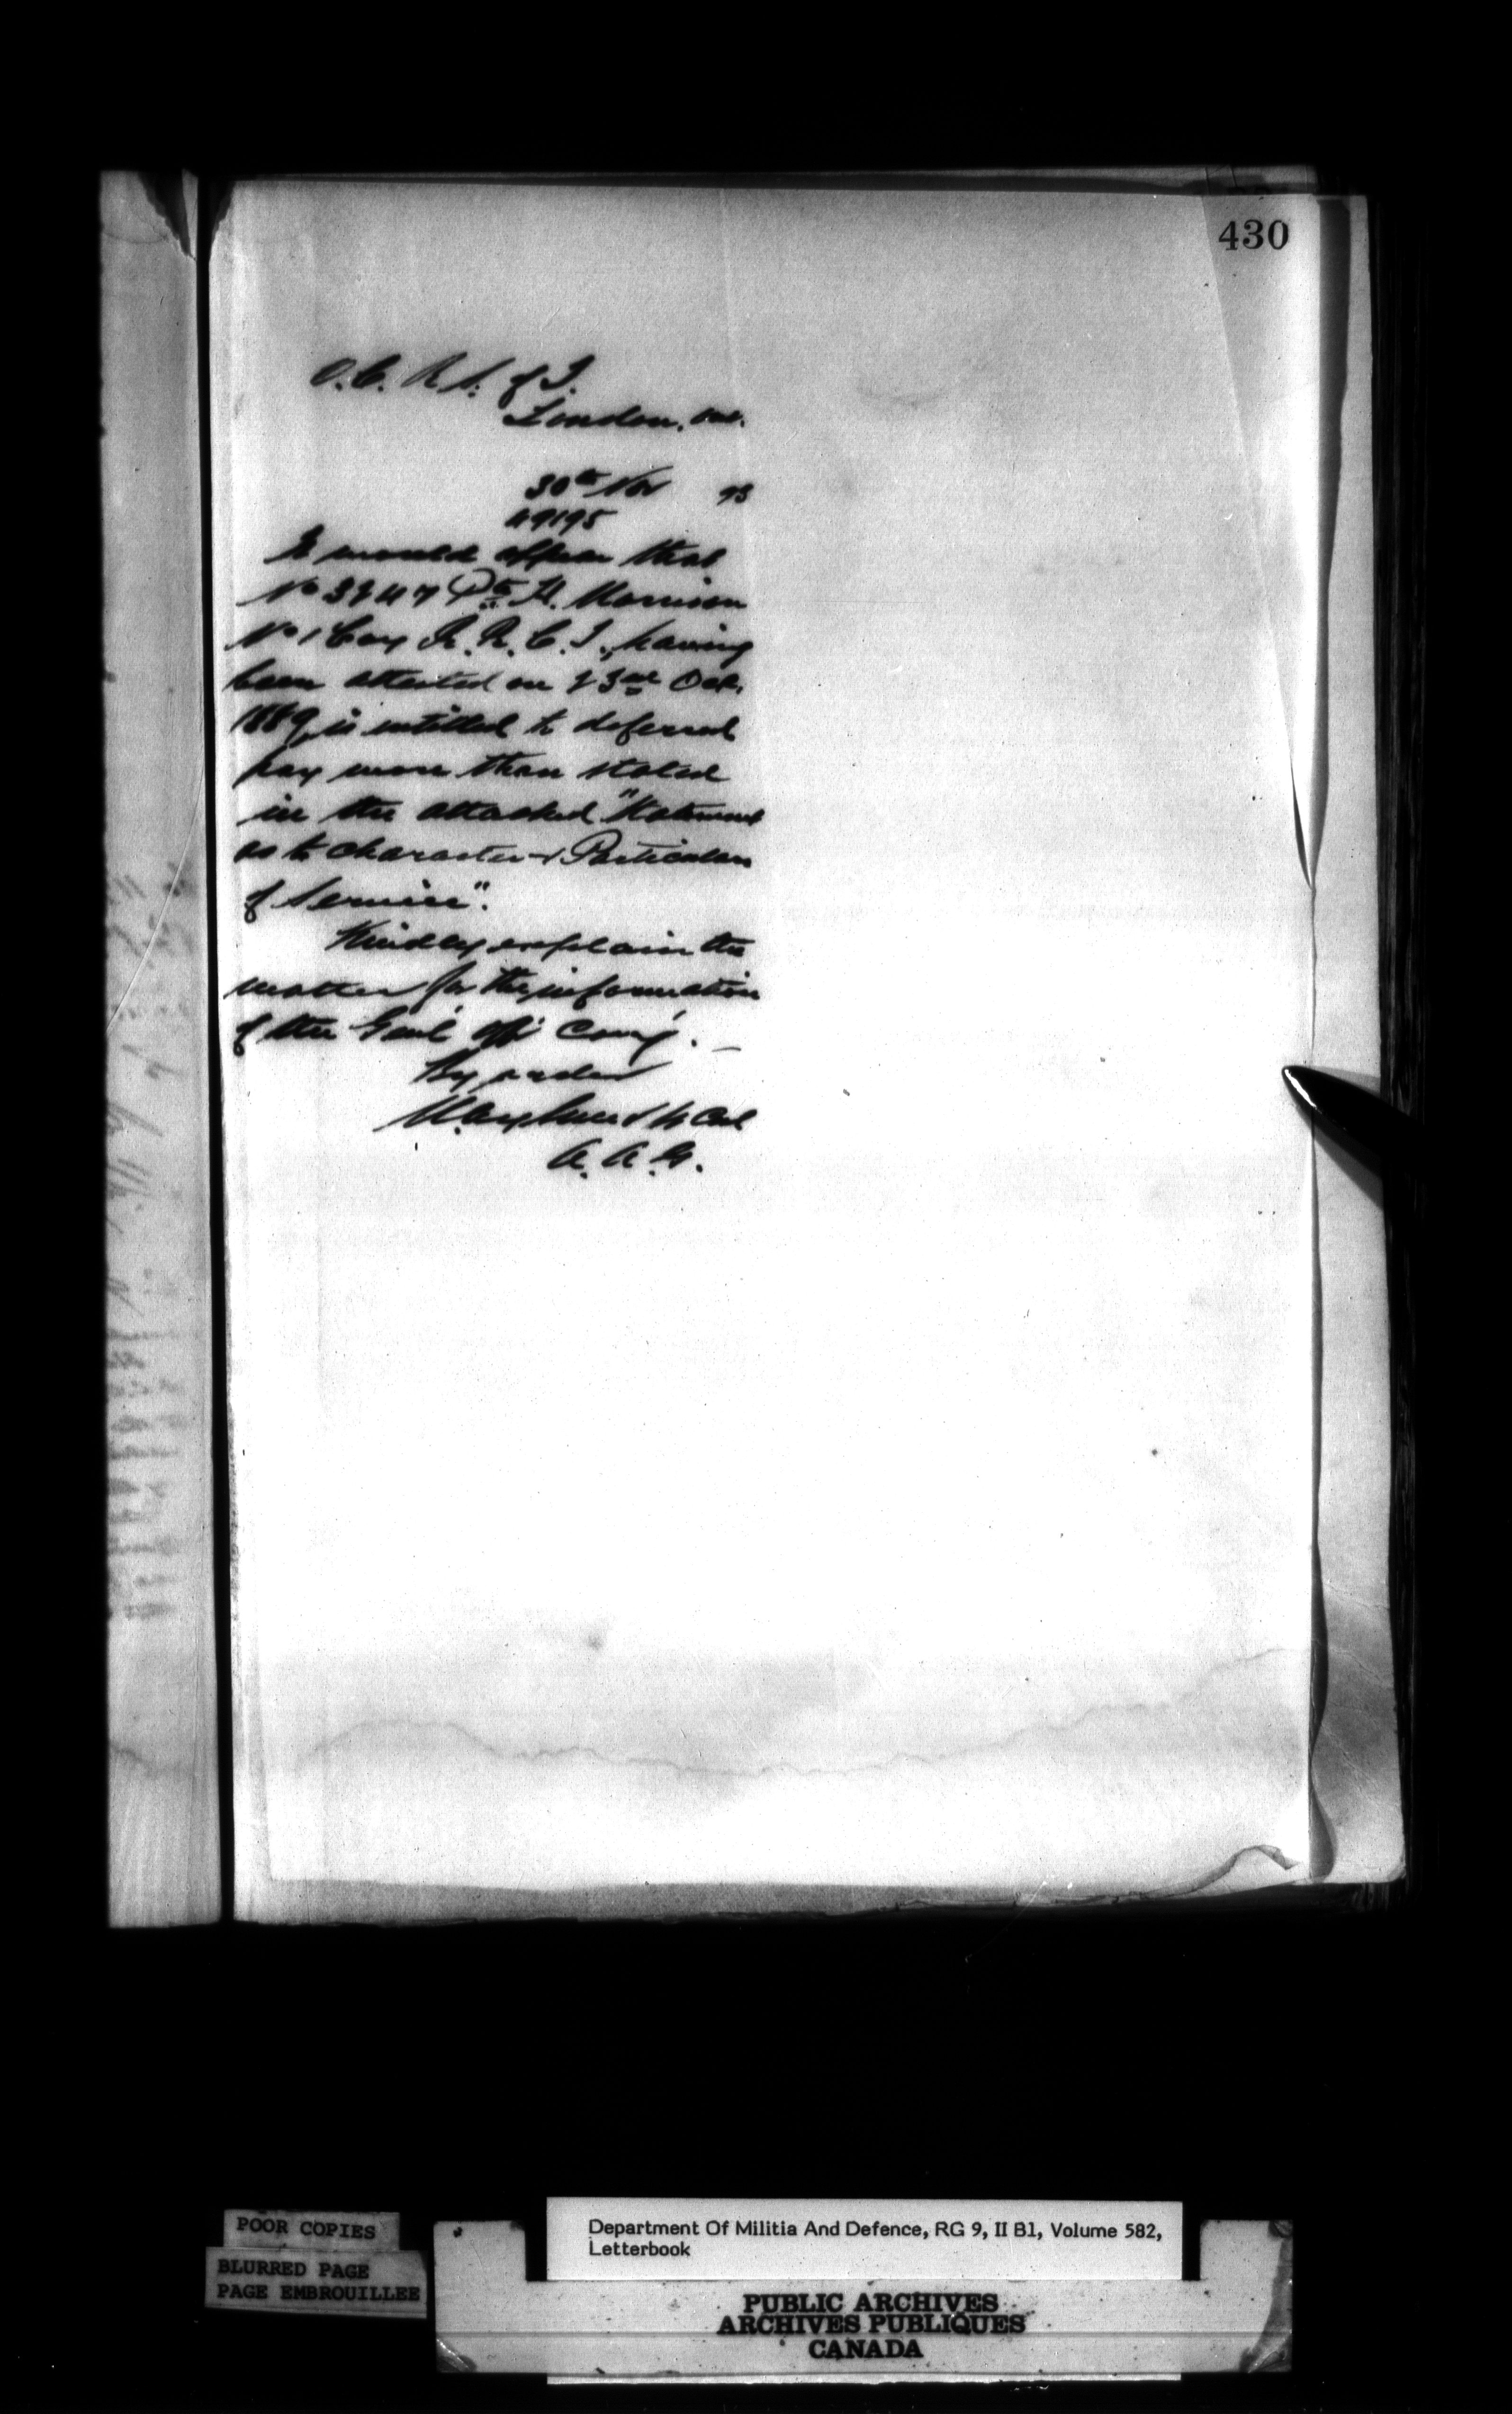 430
O.C. R.S. of I.
London, Ont.
30th Nov 93
49195
It would appear that
No 3247 Pte H. Morrison
No 1 Coy R.R.C.I., having
been attested on 23rd Oct.
1889, is entitled to deferred
pay more than stated
in the attached "Statement
as to Character & Particulars
of Service".
Kindly explain the
matter for the information
of the Genl Off Comg. —
By order
Lt Col
A.A.G.
POOR COPIES
BLURRED PAGE
PAGE EMBROUILLEE
Department Of Militia And Defence, RG 9, II B1, Volume 582,
Letterbook
PUBLIC ARCHIVES
ARCHIVES PUBLIQUES
CANADA